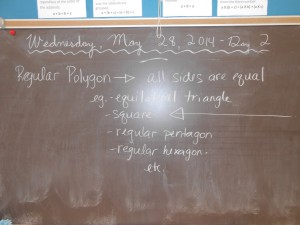 Wednesday May 28, 2014 - Day 2
Regular Polygon → all sides are equal
eg. - equilateral triangle
- square
- regular pentagon
- regular hexagon
etc.